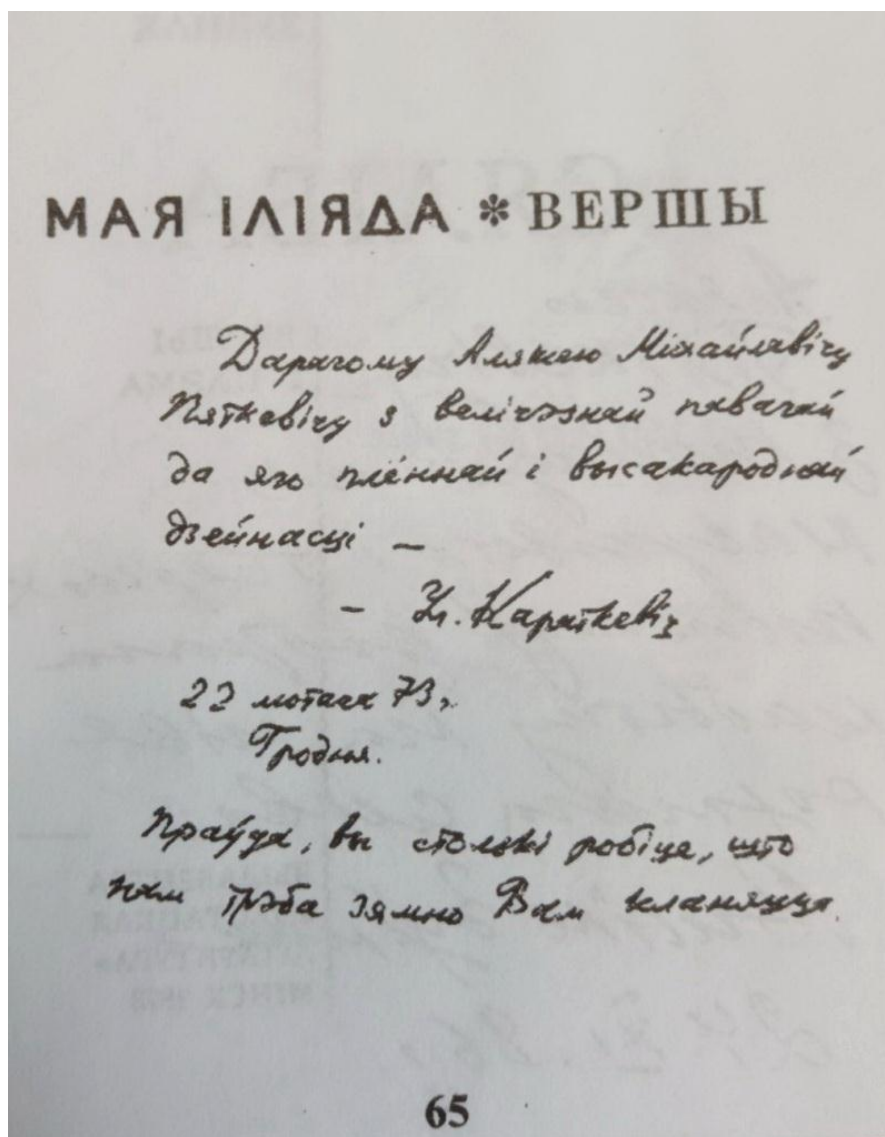 МАЯ ІЛІЯДА * ВЕРШЫ
Дарагому Аляксею Міхайлавічу
Пяткевічу з велічэзнай павагай
да яго плённай і высакароднай
дзейнасці —
– Ул. Караткевіч
22 лютага 73 г.
Гродня.
Праўда, вы столькі робіце, што
нам трэба зямно Вам кланяцца.
65